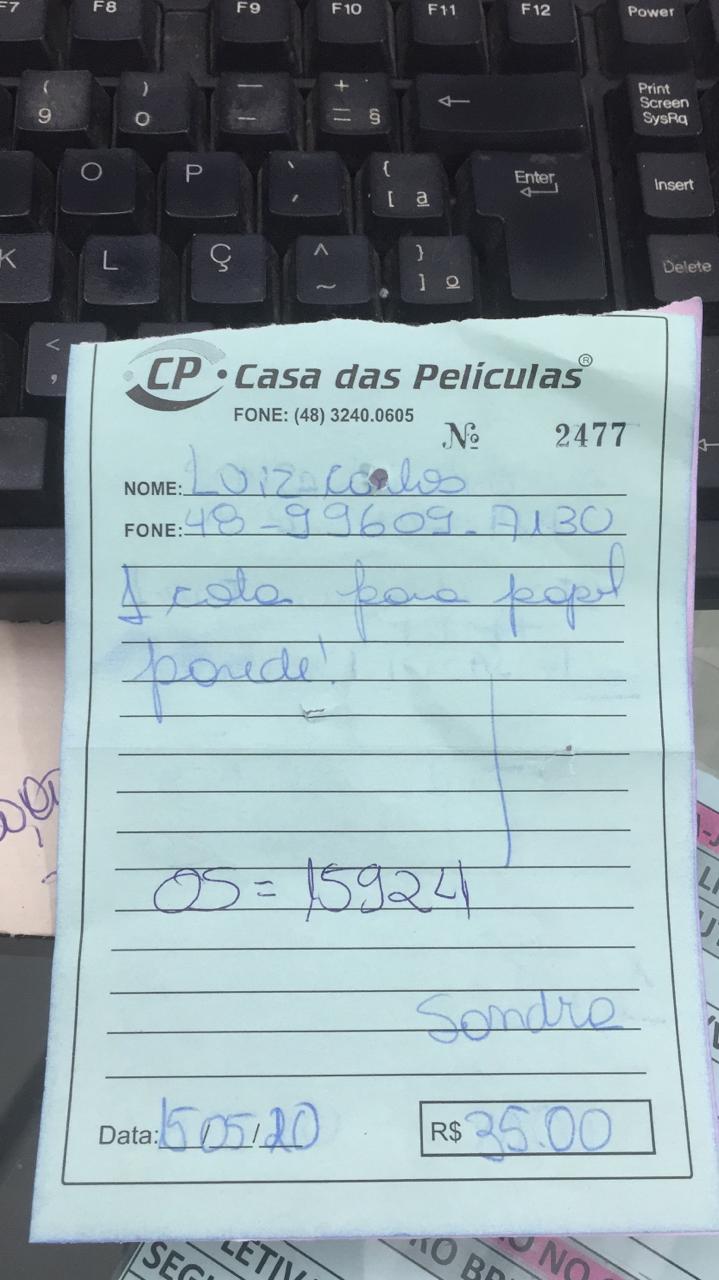 F7 F8 F9 F10 F11 F12 Power
( 9 ) 0 — - + = § ← Print Screen SysRq
O P ` ´ { [ ª Enter Insert
K L Ç ^ ~ } ] º Delete
< ,
CP • Casa das Películas®
FONE: (48) 3240.0605
Nº 2477
NOME: Luiz Carlos
FONE: 48-99609-7130
1 cola para papel
parede!
OS = 15924
Sandra
Data: 15/05/20 R$ 35.00